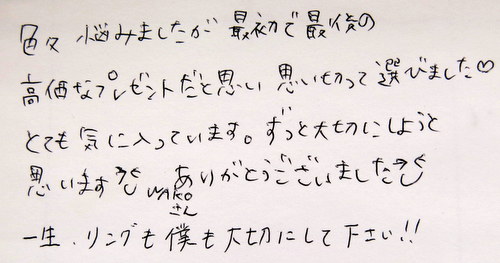 色々 悩みましたが 最初で最後の
高価なプレゼントだと思い 思い切って選びました♡
とても気に入っています。ずっと大切にしようと
思います
WAKO
さん
ありがとうございました
一生、リングも僕も大切にして下さい!!